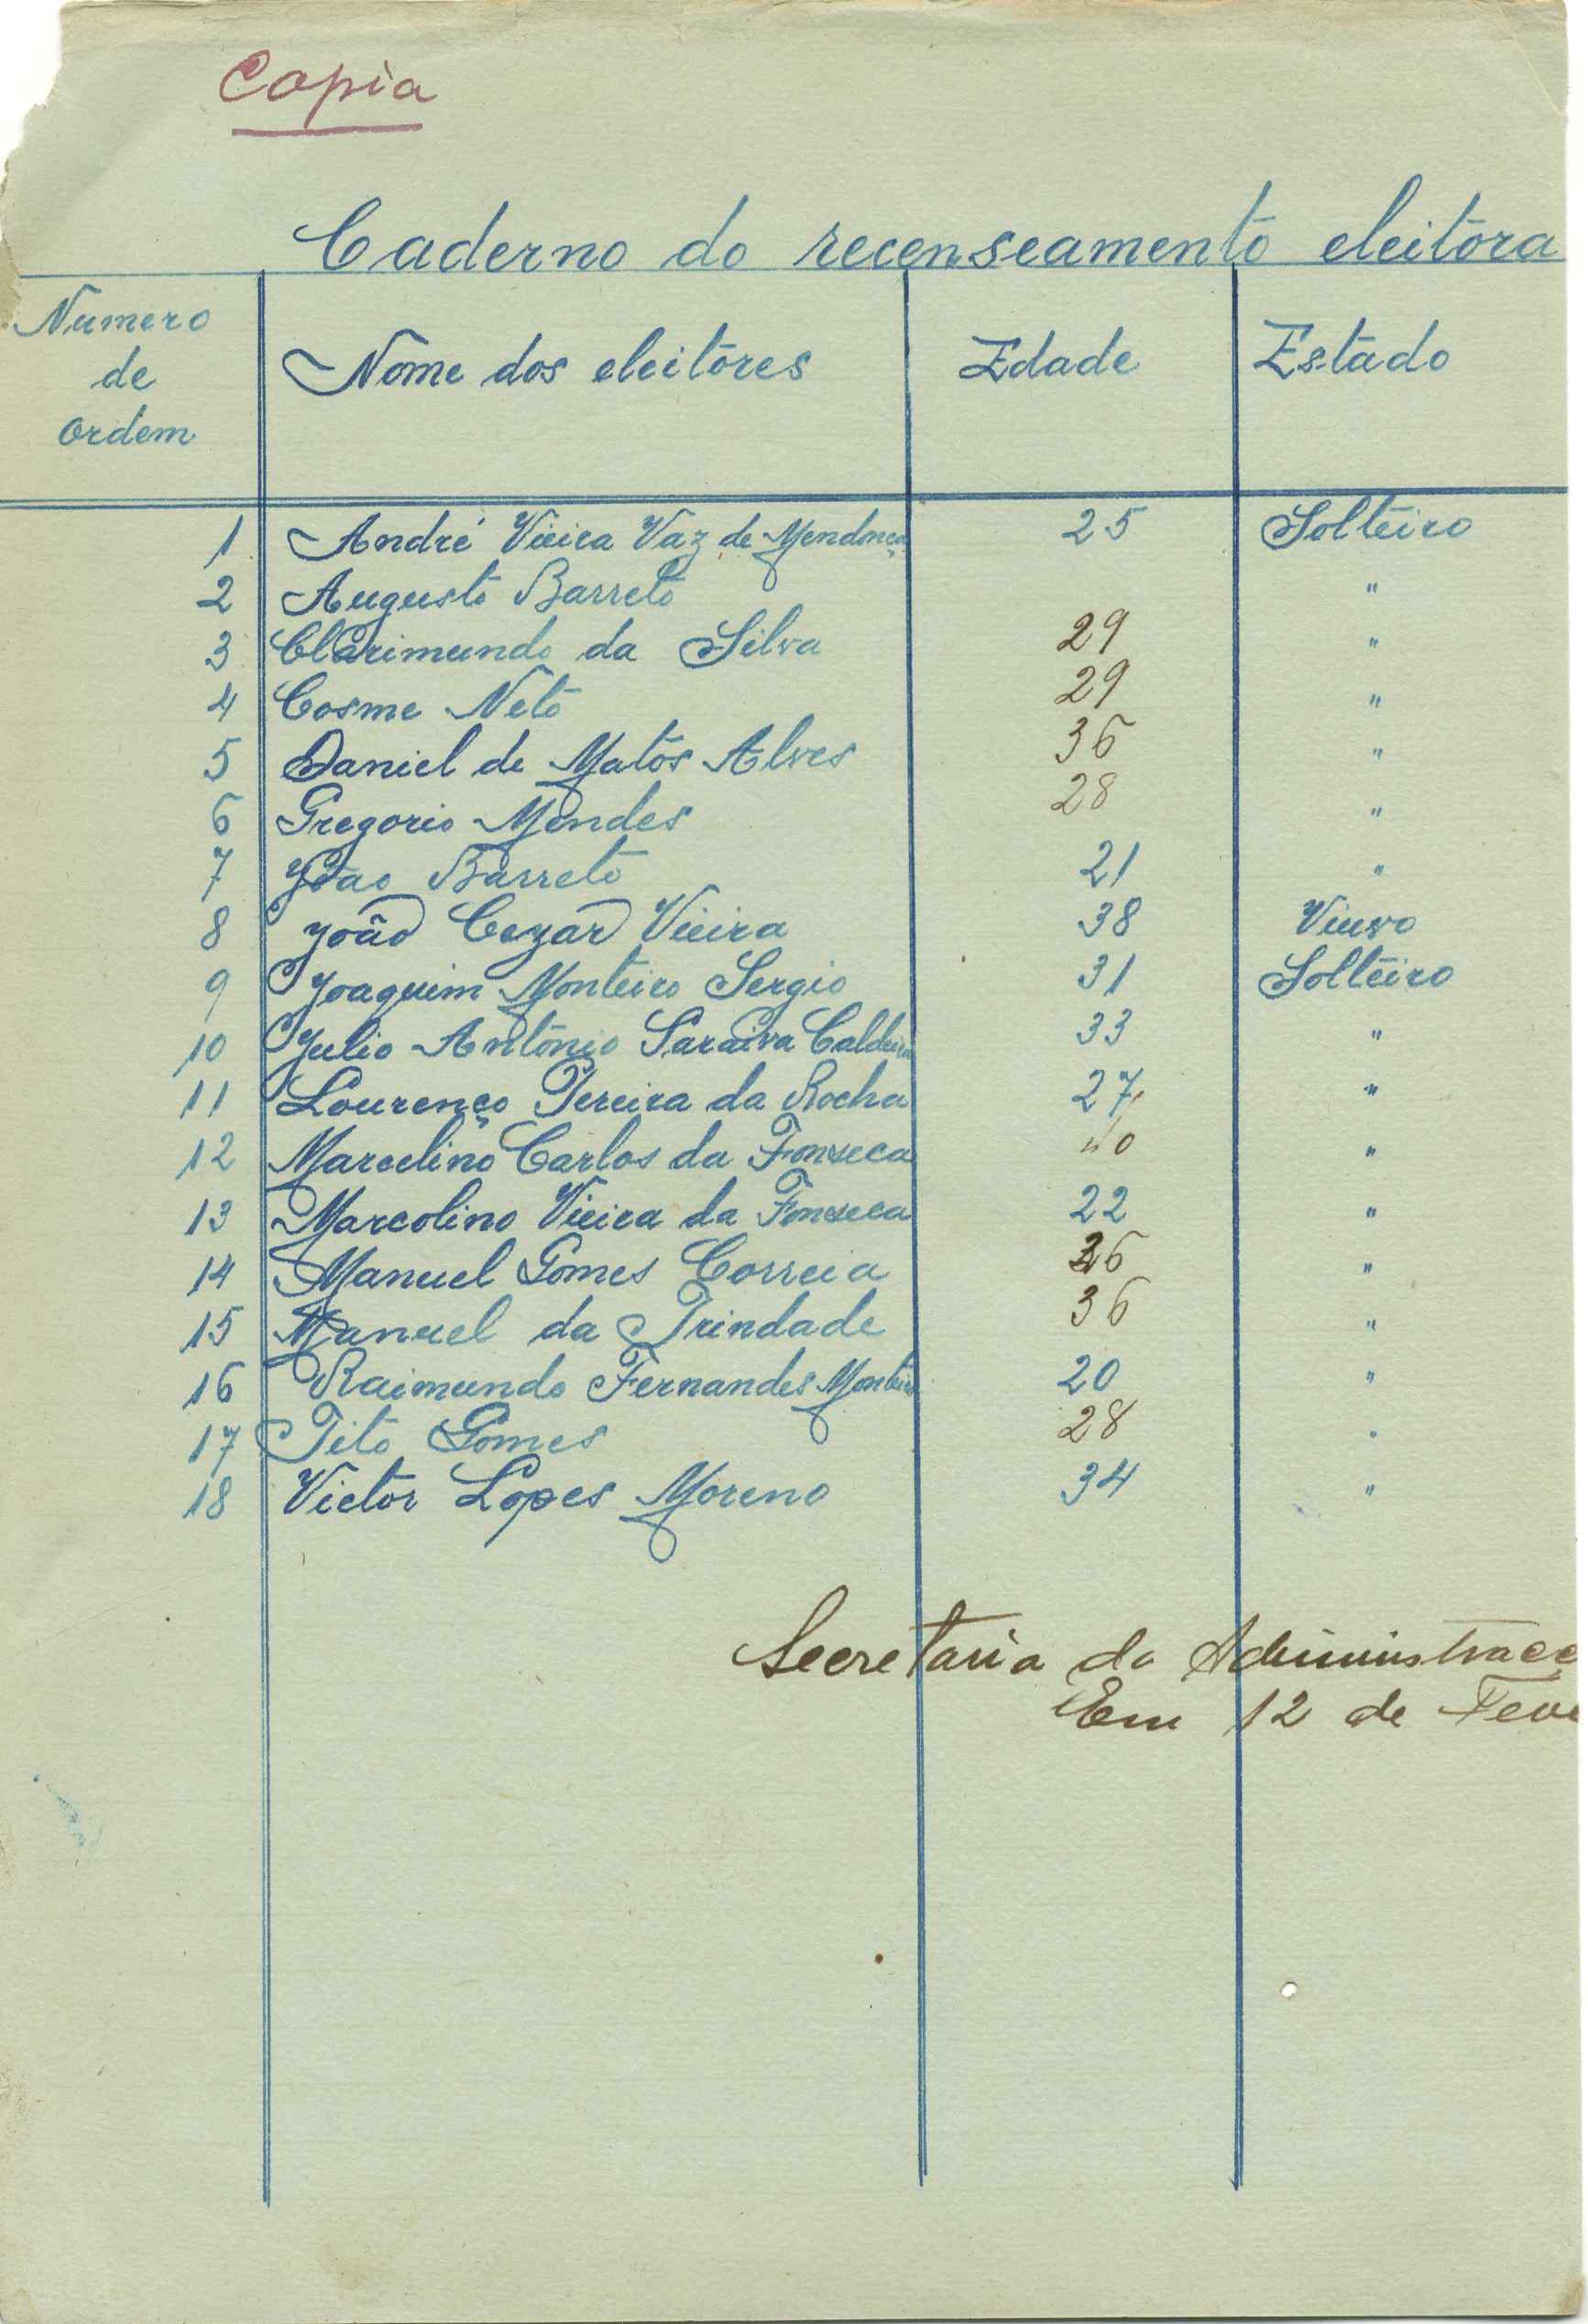 Copia
Caderno do recenseamento eleitora
Numero de ordem Nome dos eleitores Edade Estado
1 André Vieira Vaz de Mendonça 25 Solteiro
2 Augusto Barreto "
3 Clarimundo da Silva 29 "
4 Cosme Neto 29 "
5 Daniel de Matos Alves 36 "
6 Gregorio Mendes 28 "
7 João Barreto 21 "
8 João Cezar Vieira 38 Viuvo
9 Joaquim Monteiro Sergio 31 Solteiro
10 Julio Antonio Saraiva Caldeira 33 "
11 Lourenço Pereira da Rocha 27 "
12 Marcelino Carlos da Fonseca 40 "
13 Marcolino Vieira da Fonseca 22 "
14 Manuel Gomes Correia "
15 Manuel da Trindade 36 "
16 Raimundo Fernandes Monteiro 20 "
17 Tito Gomes 28 "
18 Victor Lopes Moreno 34 "
Secretaria da Administrac
Em 12 de Feve